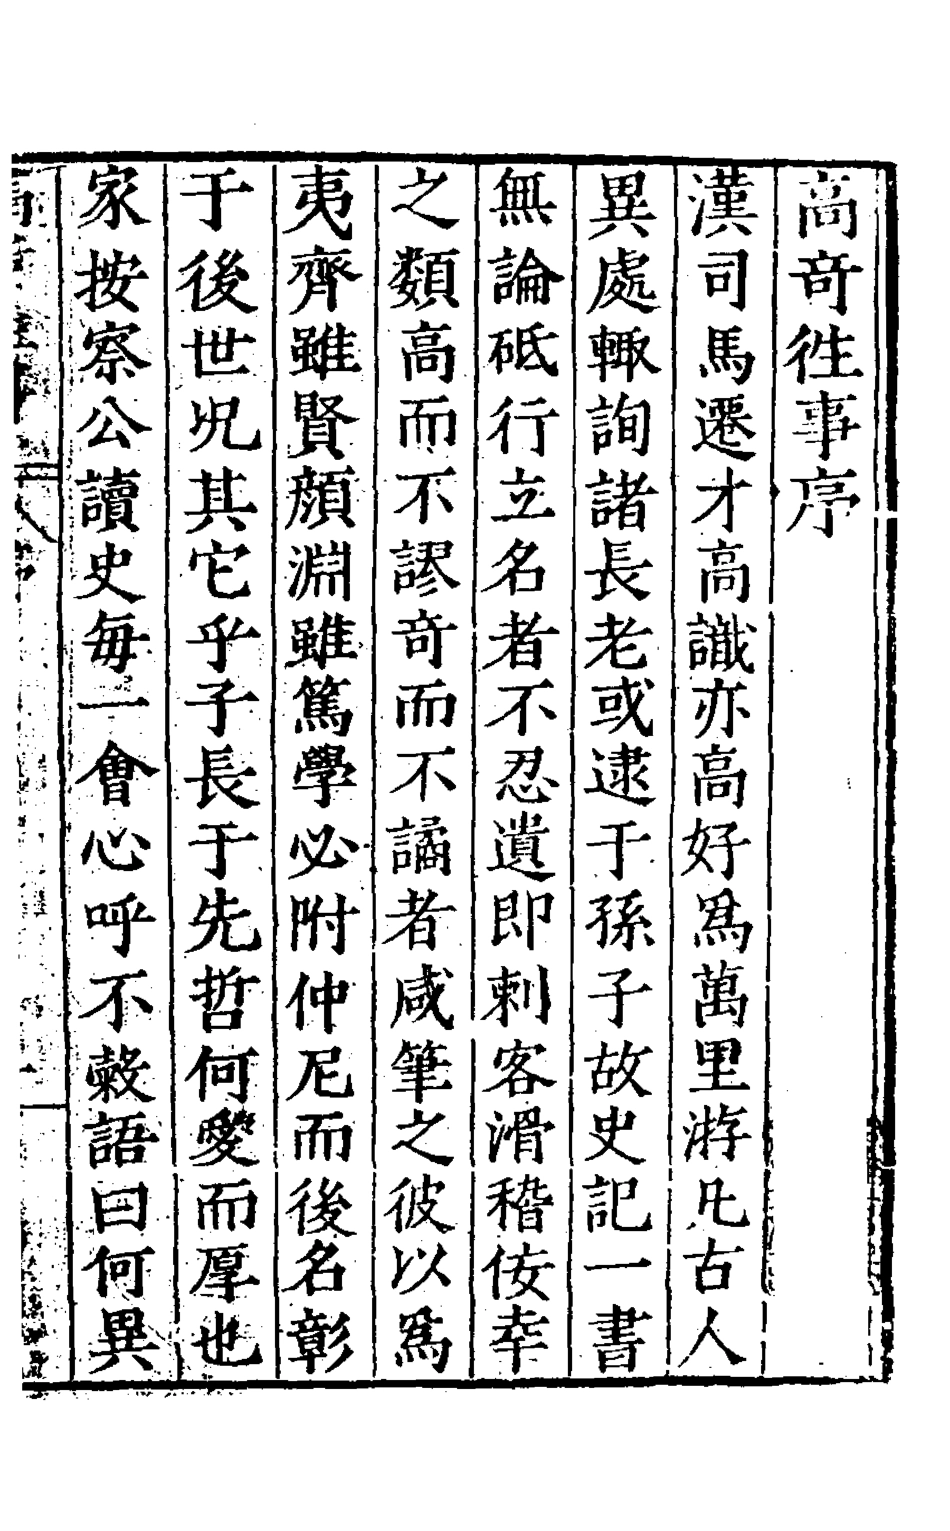 高竒徃事序
漢司馬遷才高識亦高好爲萬里游凡古人
異處輙詢諸長老或逮于孫子故史記一書
無論砥行立名者不忍遺即刺客滑稽佞幸
之類高而不謬竒而不譎者咸筆之彼以爲
夷齊雖賢顔淵雖篤學必附仲尼而後名彰
于後世况其它乎子長于先哲何愛而厚也
家按察公讀史每一會心呼不縠語曰何異